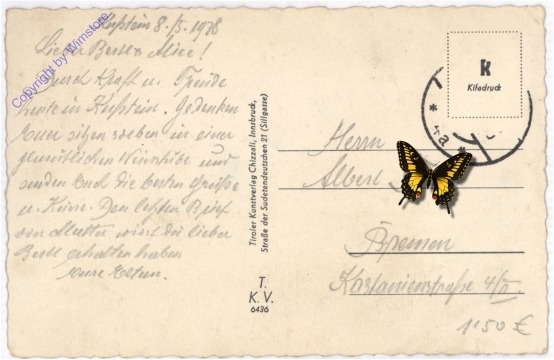 Kufstein 8./5. 1938
Lieber Bertl u. Alice!
Durch Kraft u. Freude
heute in Kufstein. Gedenken
Euer sitzen soeben in einer
gemütlichen Weinstube und
senden Euch die besten Grüße
u. Küsse. Den letzten Brief
von Mutter wirst du lieber
Bertl erhalten haben
Eure Eltern.
Copyright by Wimstore
Tiroler Kunstverlag Chizzali, Innsbruck,
Straße der Sudetendeutschen 21 (Sillgasse)
T.
K. V.
6436
k
Kifadruck
Herrn
Albert
Bremen
Kastanienstraße
1'50 €